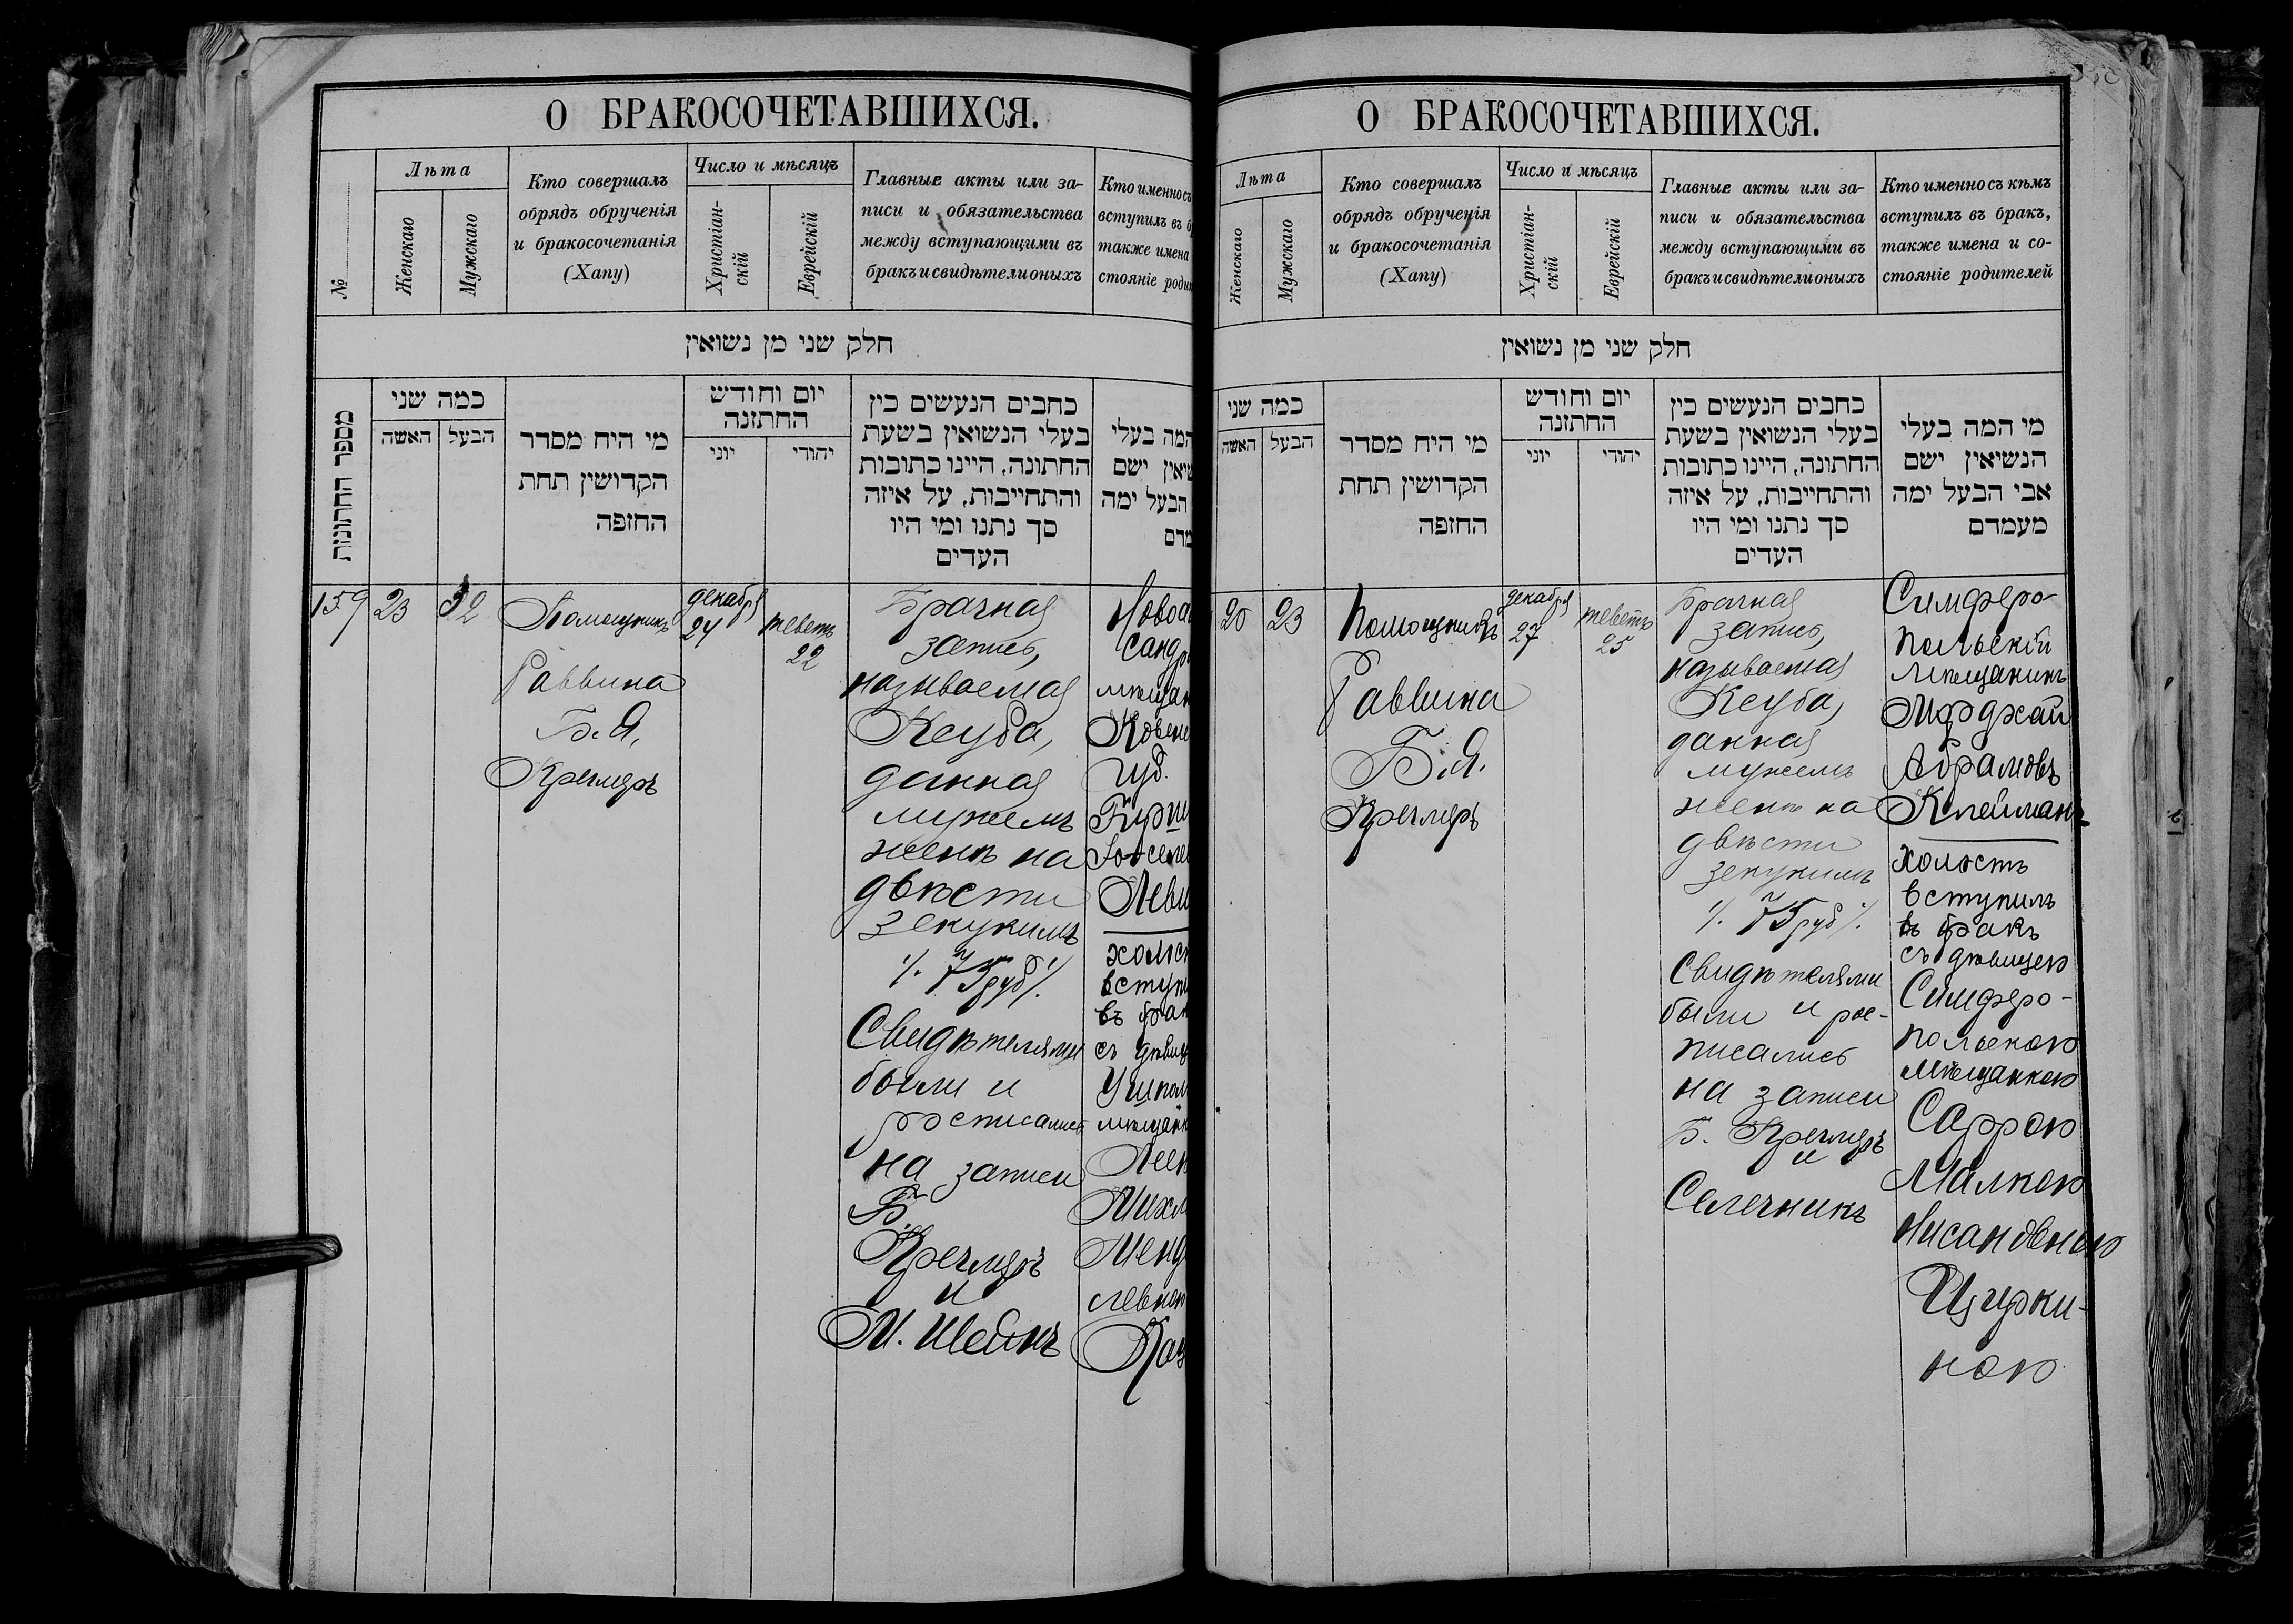 О БРАКОСОЧЕТАВШИХСЯ.
№
Лѣта
Женскаго
Мужскаго
Кто совершалъ
обрядъ обрученія
и бракосочетанія
(Хапу)
Число и мѣсяцъ
Христіан-
скій
Еврейскій
Главные акты или за-
писи и обязательства
между вступающими въ
бракъ и свидѣтели оныхъ
Кто именно съ
вступилъ въ б
также имена
стояніе роди
חלק שני מן נשואין
מספר החתונות
כמה שני
האשה
הבעל
מי היח מסדר
הקדושין תחת
החזפה
יום וחודש
החתזנה
יוני
יהודי
כחבים הנעשים כין
בעלי הנשואין בשעת
החתונה, היינו כתובות
והתחייבות, על איזה
סך נתנו ומי היו
העדים
המה בעלי
שיאין ישם
הבעל ימה
מדם
159
23
32
Помощникъ
Раввина
Б. Я.
Кречмеръ
декабря
24
теветъ
22
Брачная
запись,
называемая
Ксуба,
данная
мужемъ
женѣ на
двѣсти
зекукимъ
·/. 75 руб ·/.
Свидѣтелями
были и
росписались
на записи
Б.
Кречмеръ
и
М. Шейнъ
Новоа
сандр
мѣщан
Ковен
губ.
Гирш
Іоселе
Леви
холос
вступи
въ бра
съ дѣвиц
Ушпол
мѣщанк
Леею
Михл
Менд
левною
Кац
О БРАКОСОЧЕТАВШИХСЯ.
Лѣта
Женскаго
Мужскаго
Кто совершалъ
обрядъ обрученія
и бракосочетанія
(Хапу)
Число и мѣсяцъ
Христіан-
скій
Еврейскій
Главные акты или за-
писи и обязательства
между вступающими въ
бракъ и свидѣтели оныхъ
Кто именно съ кѣмъ
вступилъ въ бракъ,
также имена и со-
стояніе родителей
חלק שני מן נשואין
כמה שני
האשה
הבעל
מי היח מסדר
הקדושין תחת
החזפה
יום וחודש
החתזנה
יוני
יהודי
כחבים הנעשים כין
בעלי הנשואין בשעת
החתונה, היינו כתובות
והתחייבות, על איזה
סך נתנו ומי היו
העדים
מי המה בעלי
הנשיאין ישם
אבי הבעל ימה
מעמדם
20
23
Помощникъ
Раввина
Б. Я.
Кречмеръ
декабря
27
теветъ
25
Брачная
запись,
называемая
Ксуба,
данная
мужемъ
женѣ на
двѣсти
зекукимъ
·/. 75 руб ·/.
Свидѣтелями
были и рос-
писались
на записи
Б. Кречмеръ
и
Селечникъ
Симферо-
польскій
мѣщанинъ
Мордхай
Абрамовъ
Клейманъ
холостъ
вступилъ
въ бракъ
съ дѣвицею
Симферо-
польскою
мѣщанкою
Саррою
Малкою
Нисановною
Цирки-
ною